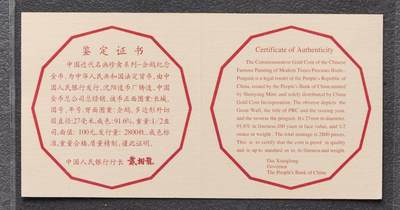 鉴定证书
中国近代名画珍禽系列—企鹅纪念
金币，为中华人民共和国法定货币，由中
国人民银行发行，沈阳造币厂铸造，中国
金币总公司总经销。该币正面图案：长城、
国号、年号，背面图案：企鹅，多边形外切
圆直径：27毫米，成色：91.6%，重量：1/2盎
司，面值：100元，发行量：2800枚，成色标
准，重量合格，质量精制，谨此证明。
中国人民银行行长 戴相龙
Certificate of Authenticity
The Commemorative Gold Coin of the Chinese
Famous Painting of Modern Times-Precious Birds-
Penguin is a legal tender of the People's Republic of
China, issued by the People's Bank of China, minted
by Shenyang Mint and solely distributed by China
Gold Coin Incorporation. The obverse depicts the
Great Wall, the title of PRC and the issuing year,
and the reverse the penguin. It's 27mm in diameter,
91.6% in fineness, 100 yuan in face value, and 1/2
ounce in weight. The total mintage is 2800 pieces.
This is to certify that the coin is proof in quality
and is up to standard as to its fineness and weight.
Dai Xianglong
Governor
The People's Bank of China